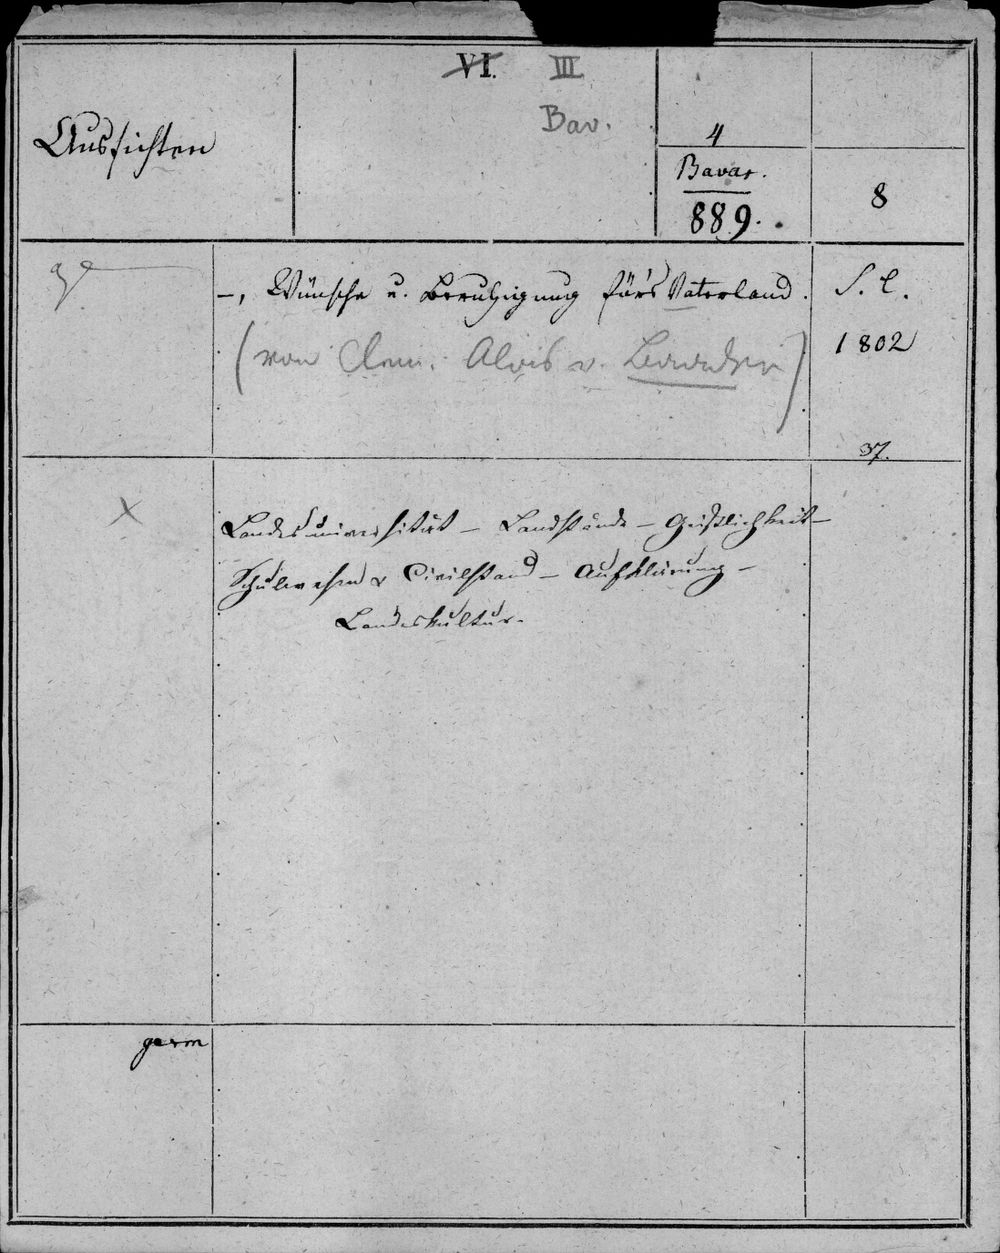 VI. III
Bav.
Aussichten
4
Bavar.
889.
8
–, Wünsche u. Beruhigung für's Vaterland.
S. l.
(von Clem. Alois v. Baader)
1802
37.
X
Landesuniversität – Landstände – Geistlichkeit –
Schulwesen & Civilstand – Aufklärung –
Landeskultur.
germ